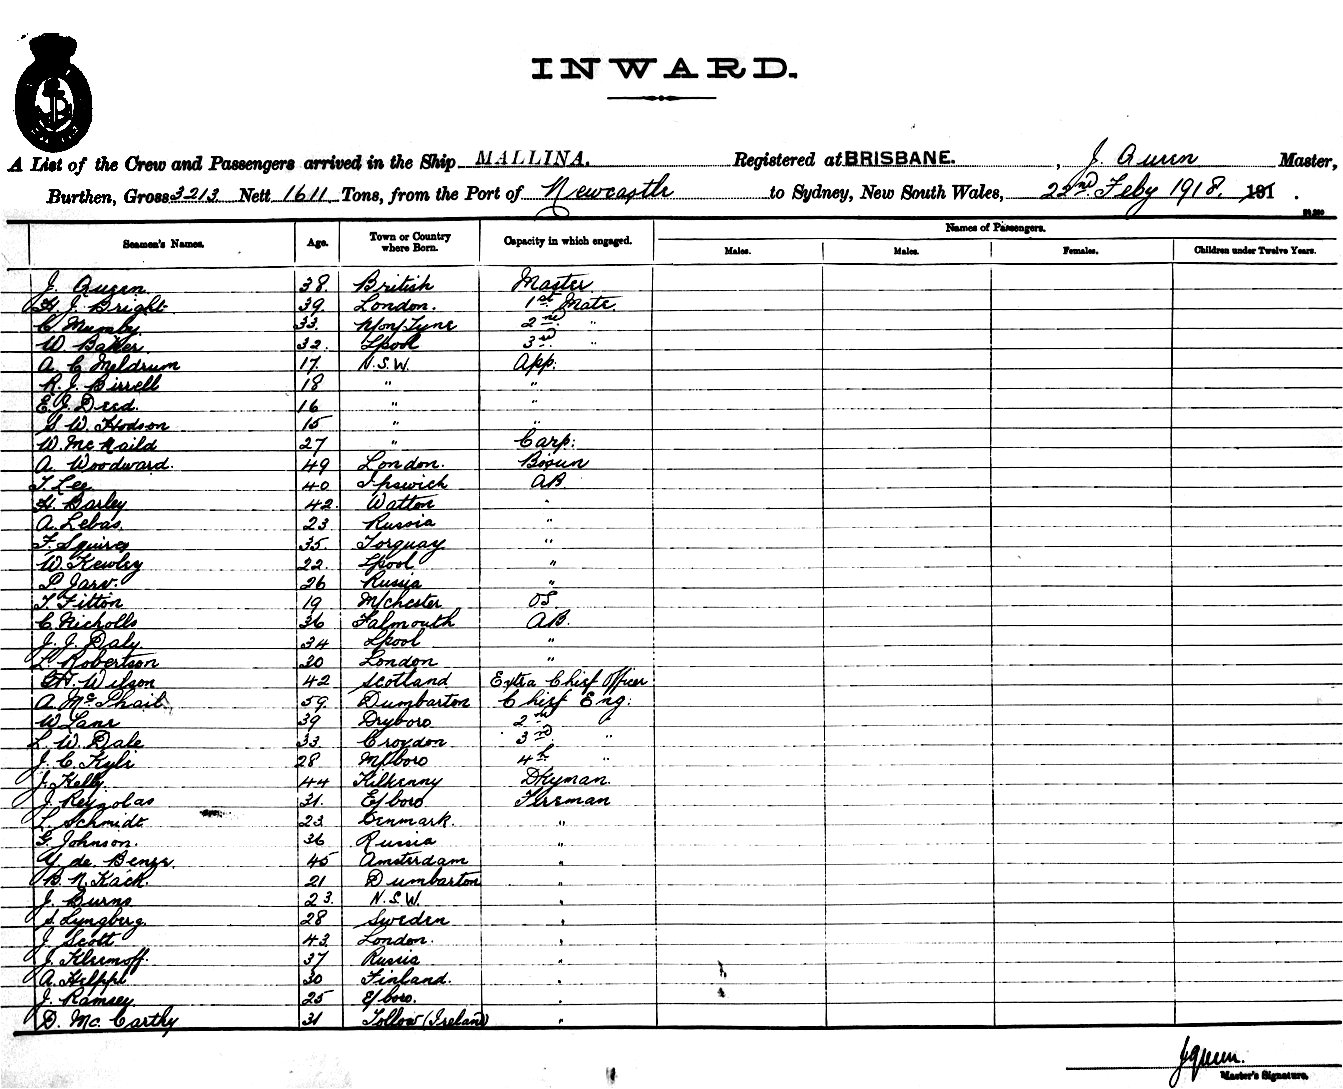 INWARD.
A List of the Crew and Passengers arrived in the Ship MALLINA. Registered at BRISBANE. , J. Queen Master,
Burthen, Gross 3213 Nett 1611 Tons, from the Port of Newcastle to Sydney, New South Wales, 22nd Feby 1918. 191 .
Names of Passengers.
Seamen's Names. Age. Town or Country where Born. Capacity in which engaged. Males. Males. Females. Children under Twelve Years.
J. Queen 38 British Master
H. J. Bright 39 London. 1st Mate
C. Mumby 33 N/on/Tyne 2nd "
W. Baker 32 Lpool 3rd "
A. C. Meldrum 17 N.S.W. App.
R. J. Birrell 18 " "
E. J. Deed. 16 " "
S W. Hodson 15 " "
W. McNaild 27 " Carp:
A. Woodward. 49 London. Bosun
T. Lee 40 Ipswich AB
H. Barley 42 Watton "
A. Lebas. 23 Russia "
F. Squires 35. Torquay "
W. Kewley 22. Lpool "
P. Jarv. 26 Russia "
T. Fitton 19 M/chester OS
C. Nicholls 36 Falmouth AB.
J. J. Daly 34 Lpool "
L. Robertson 30 London "
Wilson 42 Scotland Extra Chief Officer
A. McPhail 59 Dumbarton Chief Eng.
W. Lane 39 Dryboro 2nd "
L. W. Dale 33 Croydon 3rd "
J. C. Kyle 28 M/boro 4th "
J. Kelly 44 Kilkenny Dkyman.
J. Reynolds 31. E/boro Fireman
L. Schmidt 23 Denmark. "
G. Johnson. 36 Russia "
Y. de Benze. 45 Amsterdam "
B. N. Kack. 21 Dumbarton "
J. Burns 23. N.S.W. "
S. Lyngberg. 28 Sweden "
J. Scott 43 London. "
J. Klemoff. 37 Russia "
A. Helppi 30 Finland. "
J. Ramsey 25 E/boro. "
D. McCarthy 31 Tollow (Ireland) "
J Queen.
Master's Signature.